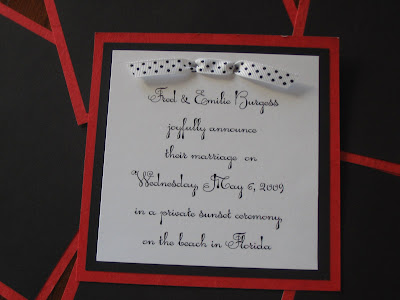 Fred & Emilie Burgess
joyfully announce
their marriage on
Wednesday, May 6, 2009
in a private sunset ceremony
on the beach in Florida